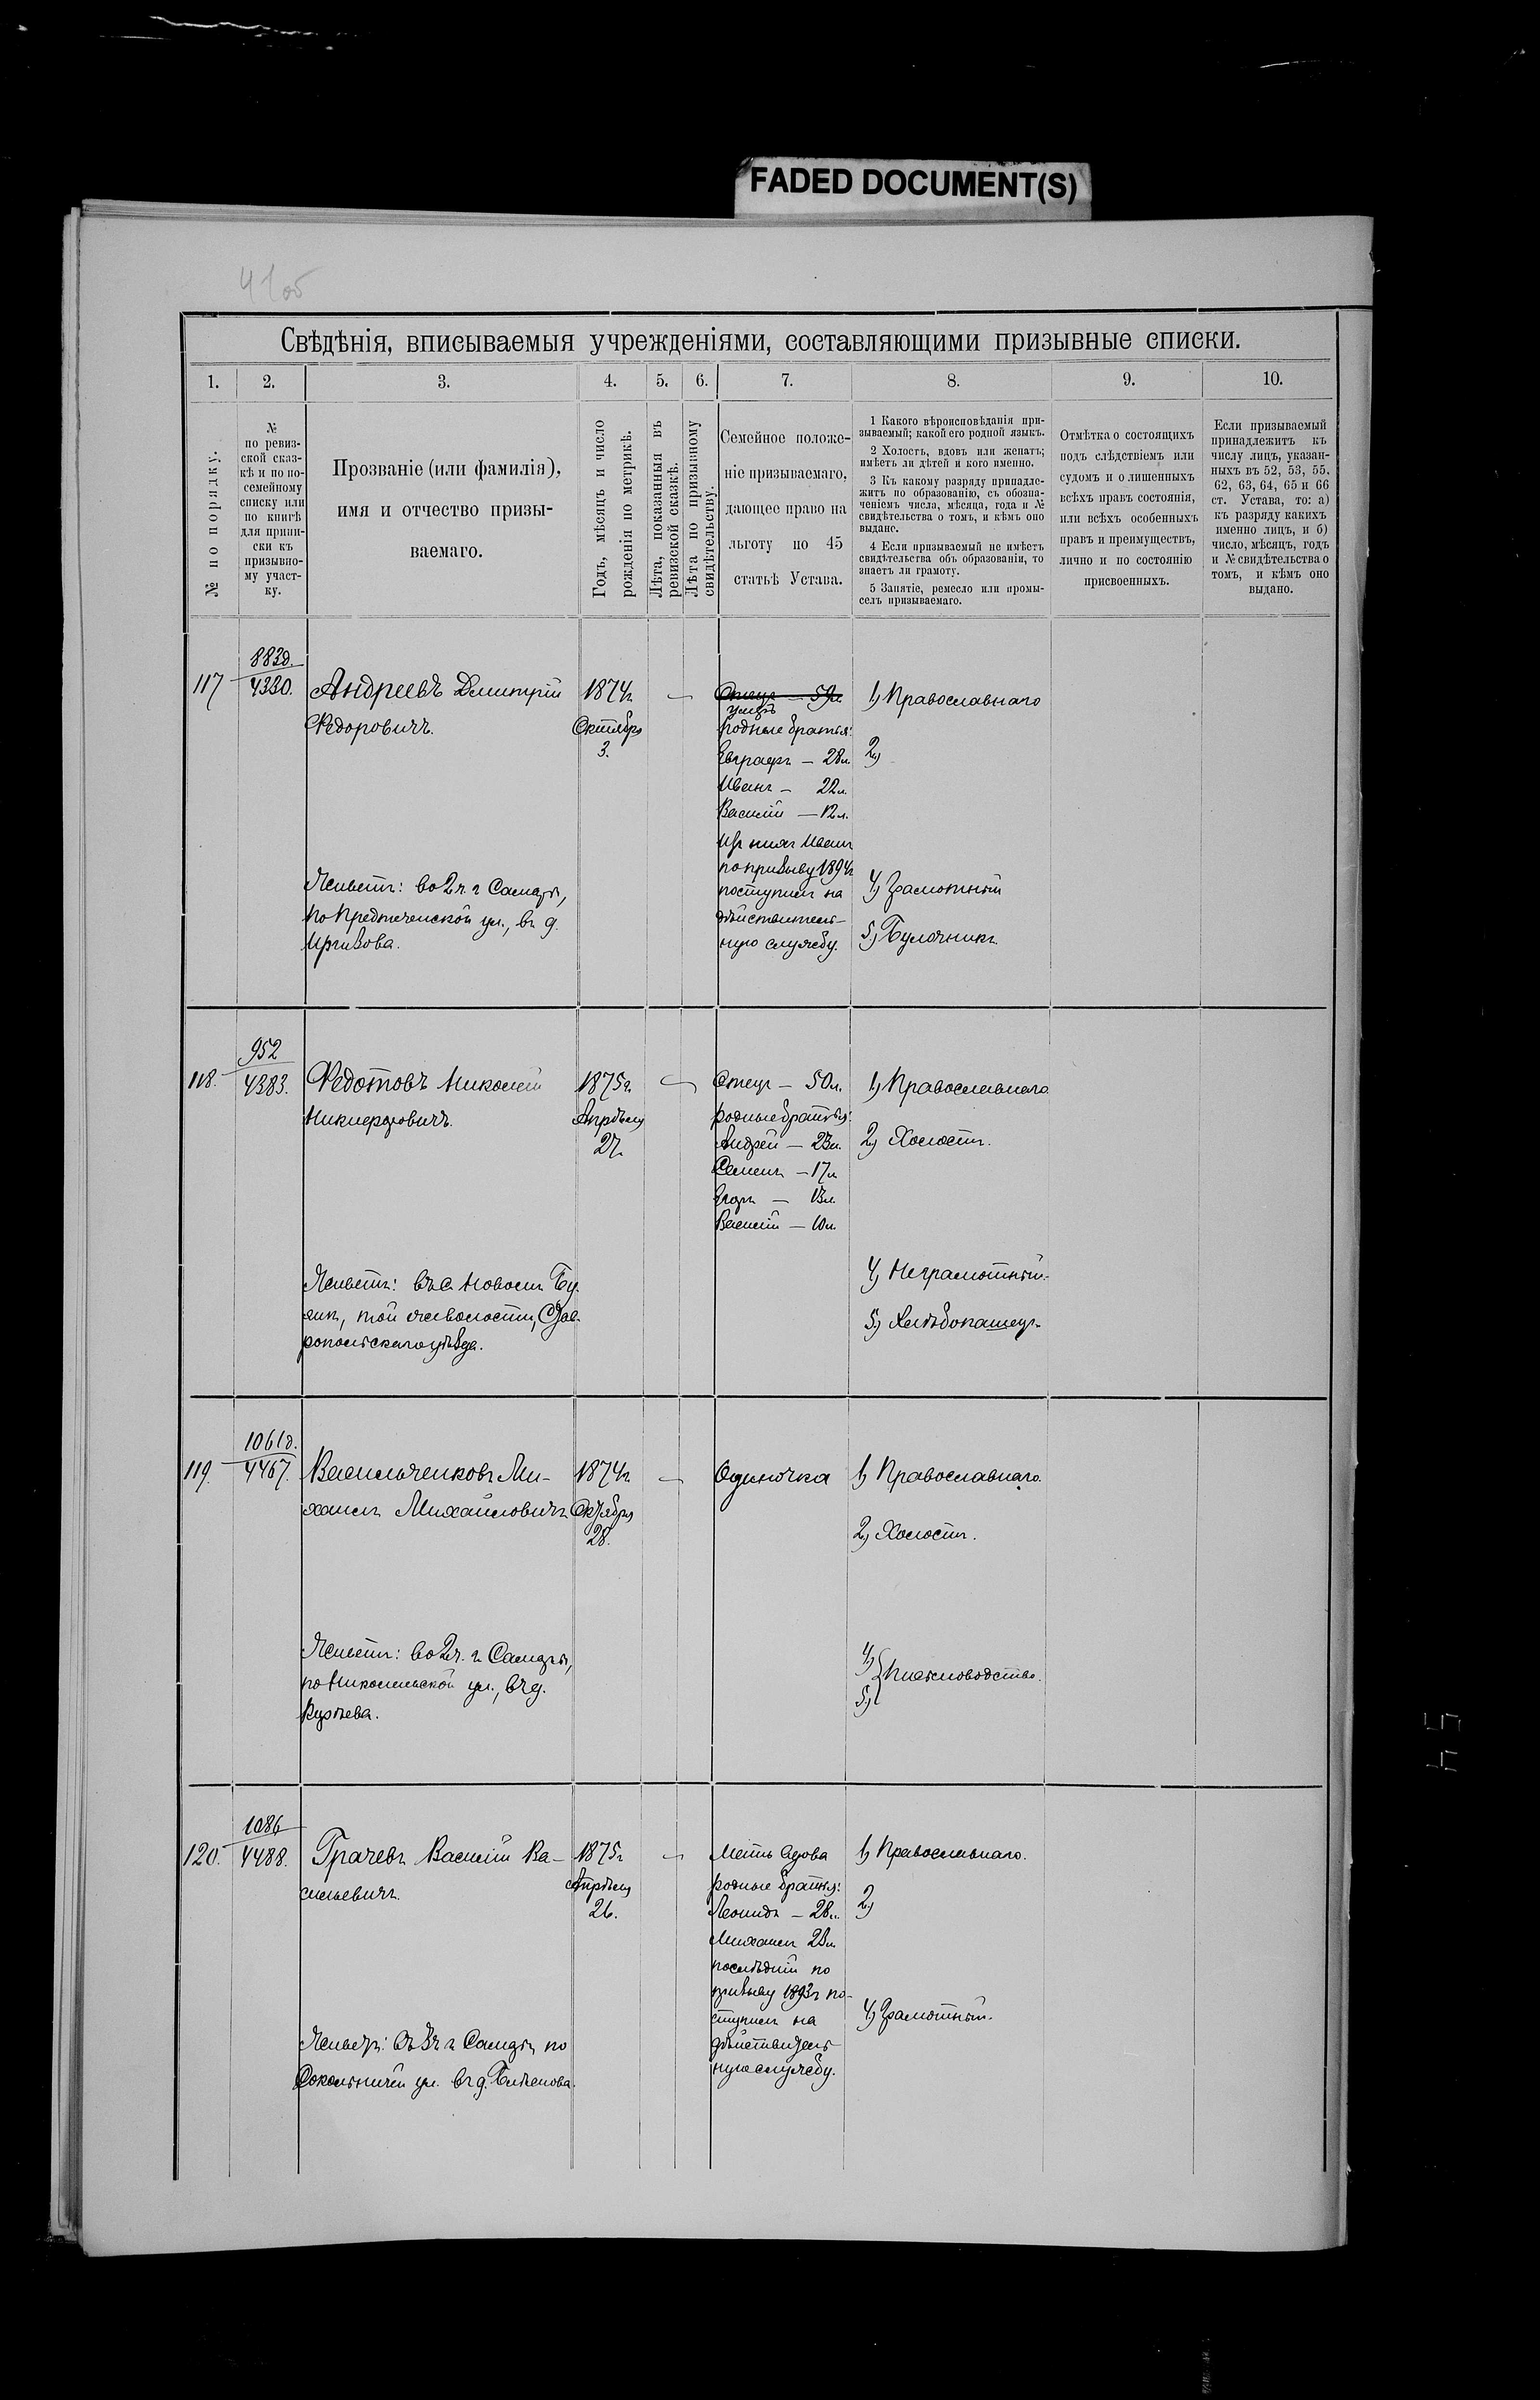 FADED DOCUMENT(S)
41об
Свѣдѣнія, вписываемыя учрежденіями, составляющими призывные списки.
1. 2. 3. 4. 5. 6. 7. 8. 9. 10.
№ по порядку.
№
по ревиз-
ской сказ-
кѣ и по по-
семейному
списку или
по книгѣ
для припи-
ски къ
призывно-
му участ-
ку.
Прозваніе (или фамилія),
имя и отчество призы-
ваемаго.
Годъ, мѣсяцъ и число
рожденія по метрикѣ.
Лѣта, показанныя въ
ревизской сказкѣ.
Лѣта по призывному
свидѣтельству.
Семейное положе-
ніе призываемаго,
дающее право на
льготу по 45
статьѣ Устава.
1 Какого вѣроисповѣданія при-
зываемый; какой его родной языкъ.
2 Холостъ, вдовъ или женатъ;
имѣетъ ли дѣтей и кого именно.
3 Къ какому разряду принадле-
житъ по образованію, съ обозна-
ченіемъ числа, мѣсяца, года и №
свидѣтельства о томъ, и кѣмъ оно
выдано.
4 Если призываемый не имѣетъ
свидѣтельства объ образованіи, то
знаетъ ли грамоту.
5 Занятіе, ремесло или промы-
селъ призываемаго.
Отмѣтка о состоящихъ
подъ слѣдствіемъ или
судомъ и о лишенныхъ
всѣхъ правъ состоянія,
или всѣхъ особенныхъ
правъ и преимуществъ,
лично и по состоянію
присвоенныхъ.
Если призываемый
принадлежитъ къ
числу лицъ, указан-
ныхъ въ 52, 53, 55,
62, 63, 64, 65 и 66
ст. Устава, то: а)
къ разряду какихъ
именно лицъ, и б)
число, мѣсяцъ, годъ
и № свидѣтельства о
томъ, и кѣмъ оно
выдано.
117
883д.
4330.
Андреевъ Дмитрій
Ѳедоровичъ.
Живетъ: во 2 ч. г. Самары,
по Предтеченской ул., въ д.
1874г.
Октября
3.
—
Отецъ — 59л.
умеръ
родные братья:
Евграфъ — 28л.
Иванъ — 22л.
Василій — 12л.
Изъ нихъ Иванъ
по призыву 1894г
поступилъ на
дѣйствитель-
ную службу.
1, Православнаго
2,
4, Грамотный
5, Булочникъ.
118.
952
4383.
Ѳедотовъ Николай
Никифоровичъ.
Живетъ: въ с. Новомъ Бу-
янѣ, той же волости, Став-
ропольскаго уѣзда.
1875г.
Апрѣля
27.
—
Отецъ — 50л.
родные братья:
Андрей — 23л.
Семенъ — 17л.
Егоръ — 13л.
Василій — 10л.
1, Православнаго
2, Холостъ.
4, Неграмотный.
5, Хлѣбопашецъ.
119.
1061д.
4467.
Васильченковъ Ми-
хаилъ Михайловичъ
Живетъ: во 2 ч. г. Самары,
по Никольской ул., въ д.
1874г.
Октября
28.
—
Одиночка
1, Православнаго.
2, Холостъ.
4,
5,
Письмоводство.
120.
1086
4488.
Грачевъ Василій Ва-
сильевичъ.
Живетъ: въ 3 ч. г. Самары по
Сокольничей ул. въ д.
1875г
Апрѣля
26.
—
Мать вдова
родные братья:
Леонидъ — 28л.
Михаилъ 23л.
послѣдній по
призыву 1893г по-
ступилъ на
дѣйствитель-
ную службу.
1, Православнаго.
2,
4, Грамотный.